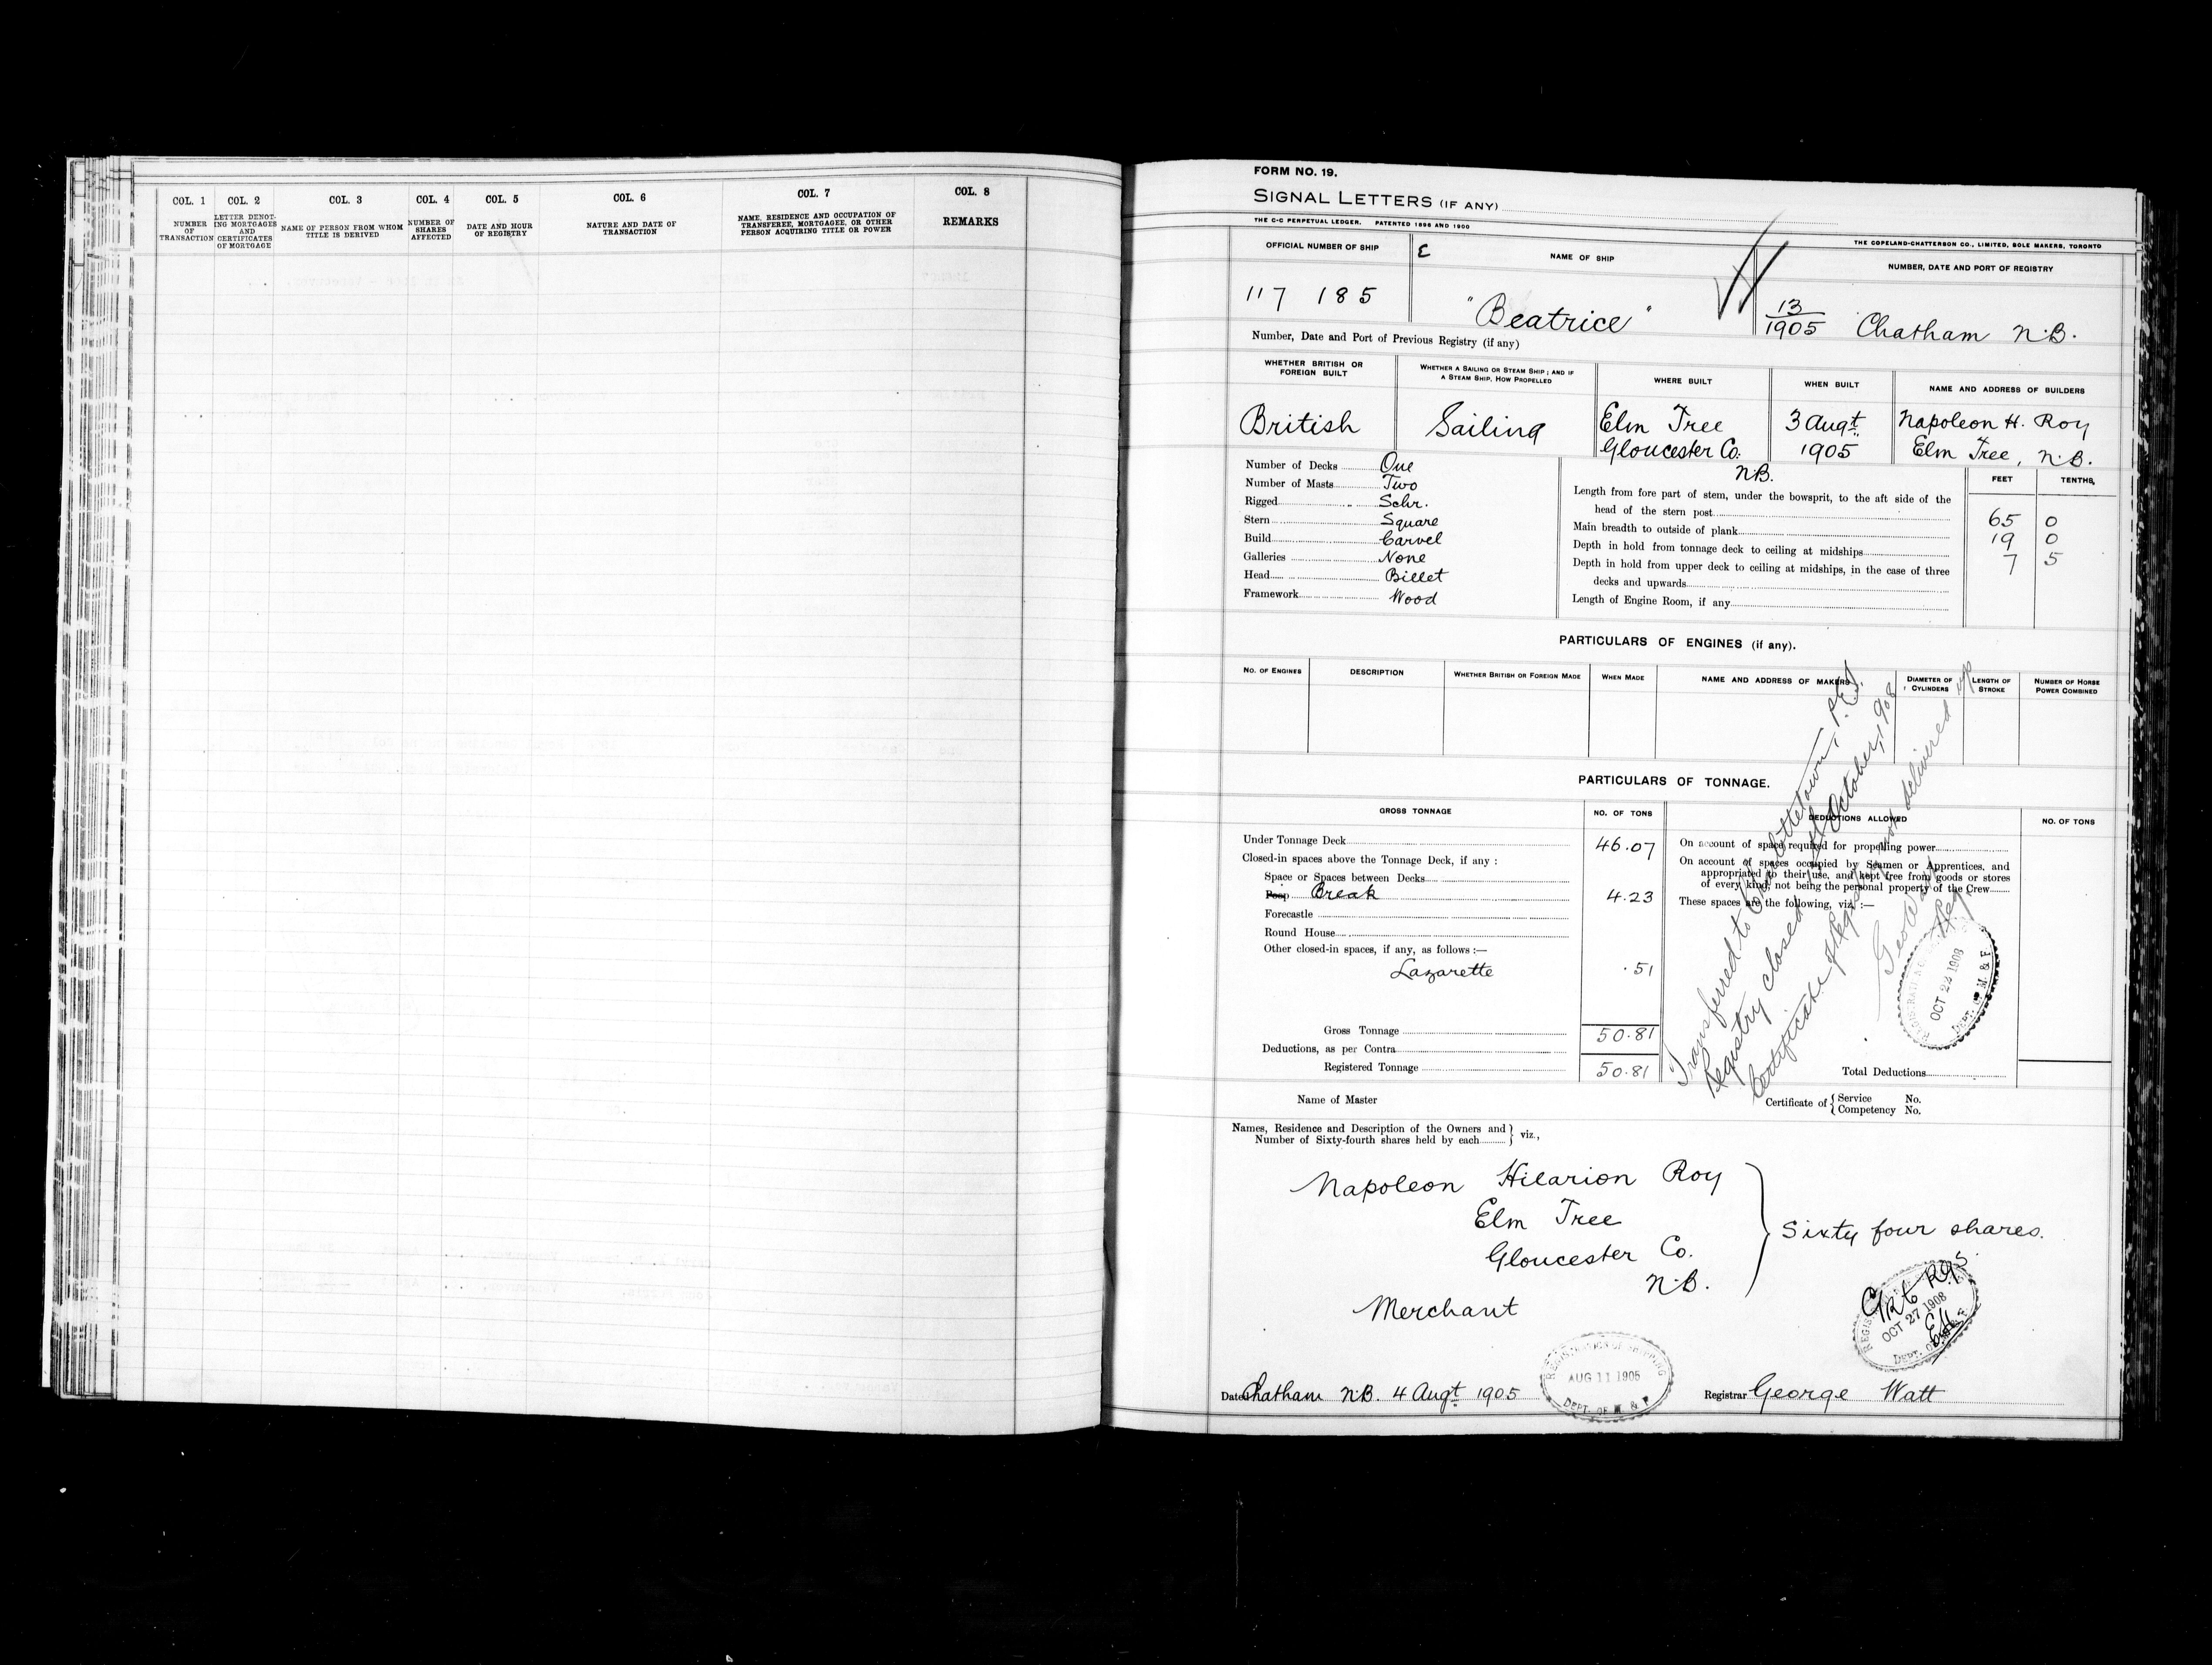 COL. 1 COL. 2 COL. 3 COL. 4 COL. 5 COL. 6 COL. 7 COL. 8
NUMBER OF TRANSACTION
LETTER DENOTING MORTGAGES AND CERTIFICATES OF MORTGAGE
NAME OF PERSON FROM WHOM TITLE IS DERIVED
NUMBER OF SHARES AFFECTED
DATE AND HOUR OF REGISTRY
NATURE AND DATE OF TRANSACTION
NAME, RESIDENCE AND OCCUPATION OF TRANSFEREE, MORTGAGEE, OR OTHER PERSON ACQUIRING TITLE OR POWER
REMARKS
FORM NO. 19.
SIGNAL LETTERS (IF ANY)
THE C-C PERPETUAL LEDGER. PATENTED 1896 AND 1900
THE COPELAND-CHATTERSON CO., LIMITED, SOLE MAKERS, TORONTO
OFFICIAL NUMBER OF SHIP NAME OF SHIP NUMBER, DATE AND PORT OF REGISTRY
117 185 "Beatrice" 13/1905 Chatham N.B.
Number, Date and Port of Previous Registry (if any)
WHETHER BRITISH OR FOREIGN BUILT
WHETHER A SAILING OR STEAM SHIP; AND IF A STEAM SHIP, HOW PROPELLED
WHERE BUILT WHEN BUILT NAME AND ADDRESS OF BUILDERS
British Sailing Elm Tree 3 Augt. Napoleon H. Roy
Gloucester Co. 1905 Elm Tree, N.B.
N.B.
FEET TENTHS
Number of Decks One
Number of Masts Two
Rigged Schr.
Stern Square
Build Carvel
Galleries None
Head Billet
Framework Wood
Length from fore part of stem, under the bowsprit, to the aft side of the
head of the stern post 65 0
Main breadth to outside of plank 19 0
Depth in hold from tonnage deck to ceiling at midships 7 5
Depth in hold from upper deck to ceiling at midships, in the case of three
decks and upwards
Length of Engine Room, if any
PARTICULARS OF ENGINES (if any).
NO. OF ENGINES DESCRIPTION WHETHER BRITISH OR FOREIGN MADE WHEN MADE NAME AND ADDRESS OF MAKERS DIAMETER OF CYLINDERS LENGTH OF STROKE NUMBER OF HORSE POWER COMBINED
PARTICULARS OF TONNAGE.
GROSS TONNAGE NO. OF TONS DEDUCTIONS ALLOWED NO. OF TONS
Under Tonnage Deck 46.07
Closed-in spaces above the Tonnage Deck, if any :
Space or Spaces between Decks
Poop Break 4.23
Forecastle
Round House
Other closed-in spaces, if any, as follows :—
Lazarette .51
Gross Tonnage 50.81
Deductions, as per Contra
Registered Tonnage 50.81
On account of space required for propelling power
On account of spaces occupied by Seamen or Apprentices, and
appropriated to their use, and kept free from goods or stores
of every kind, not being the personal property of the Crew
These spaces are the following, viz. :—
Total Deductions
Transferred to Charlottetown, P.E.I.
Registry closed October, 1908
Certificate of Registry delivered up
Geo Watt
Reg
OCT 22 1908
DEPT. OF M. & F.
Name of Master
Certificate of { Service No.
Competency No.
Names, Residence and Description of the Owners and
Number of Sixty-fourth shares held by each } viz.,
Napoleon Hilarion Roy
Elm Tree
Gloucester Co.
N.B.
Merchant
Sixty four shares.
OCT 27 1908
REGISTRATION OF SHIPPING
AUG 11 1905
DEPT. OF M. & F.
Dated Chatham N.B. 4 Augt 1905
Registrar George Watt